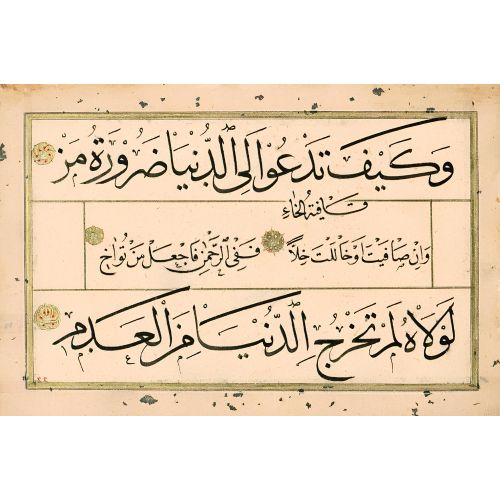 وَكَيْفَ تَدْعُو اِلَى الدُّنْيَا ضَرُورَةُ مَنْ
قَافِيَةُ الْخَاءِ
وَاِنْ صَافَيْتَ اَوْ خَالَلْتَ خِلاًّ فَفِى الرَّحْمٰنِ فَاجْعَلْ مَنْ تُوَاخِ
لَوْلَاهُ لَمْ تَخْرُجِ الدُّنْيَا مِنَ الْعَدَمِ